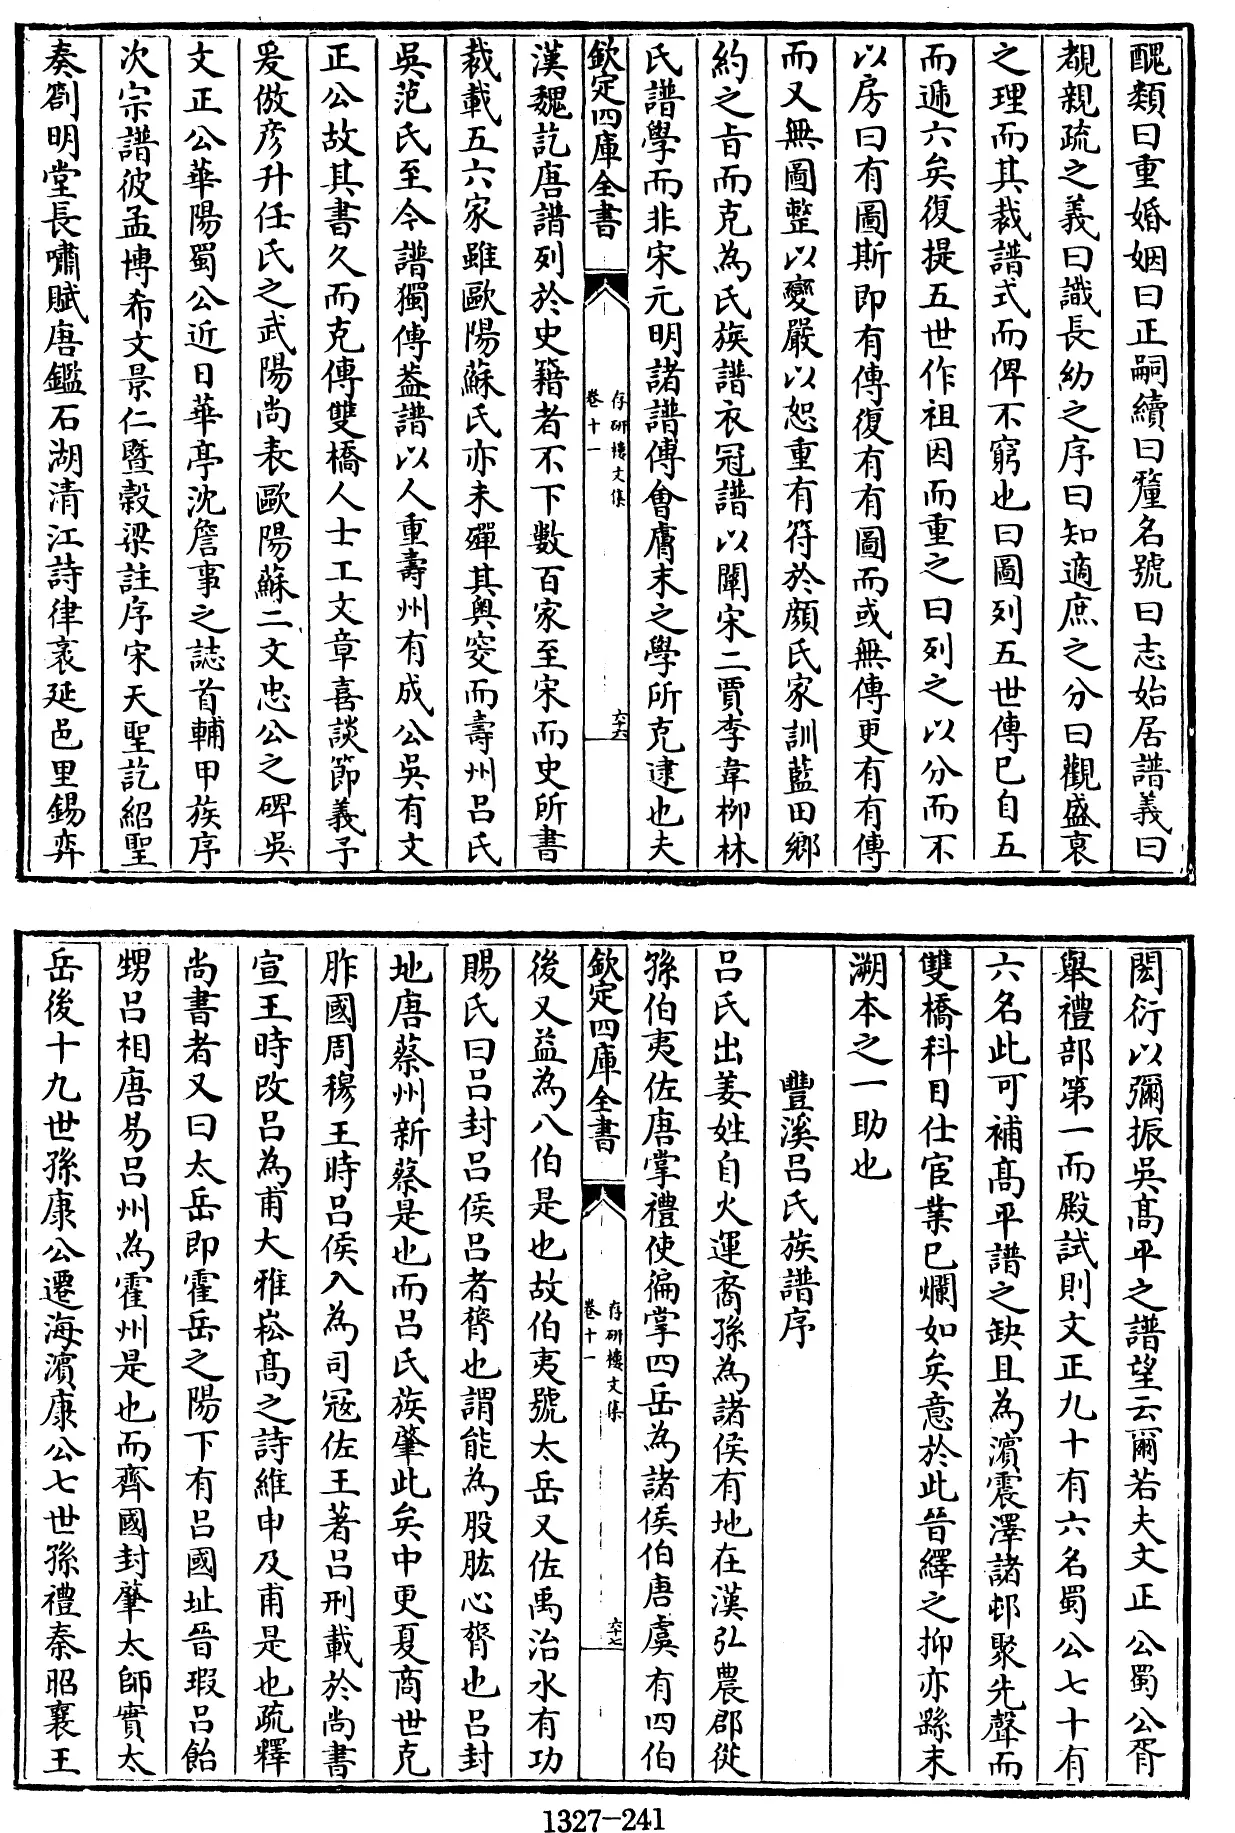 醜類曰重婚姻曰正嗣續曰釐名號曰志始居譜義曰
覩親疏之義曰識長幼之序曰知適庶之分曰觀盛衰
之理而其裁譜式而俾不窮也曰圖列五世傳已自五
而遞六矣復提五世作祖因而重之曰列之以分而不
以房曰有圖斯即有傳復有有圖而或無傳更有有傳
而又無圖整以變嚴以恕重有符於顔氏家訓藍田鄉
約之旨而克為氏族譜衣冠譜以闡宋二賈李韋柳林
氏譜學而非宋元明諸譜傅會膚末之學所克逮也夫
欽定四庫全書
存研樓文集
卷十一
六十六
漢魏訖唐譜列於史籍者不下數百家至宋而史所書
裁載五六家雖歐陽蘇氏亦未殫其奥窔而壽州呂氏
吳范氏至今譜獨傳葢譜以人重壽州有成公吳有文
正公故其書久而克傳雙橋人士工文章喜談節義予
爰倣彦升任氏之武陽尚表歐陽蘇二文忠公之碑吳
文正公華陽蜀公近日華亭沈詹事之誌首輔甲族序
次宗譜彼孟博希文景仁暨榖梁註序宋天聖訖紹聖
奏劄明堂長嘯賦唐鑑石湖清江詩律袤延邑里錫弈
閎衍以彌振吳髙平之譜望云爾若夫文正公蜀公胥
舉禮部第一而殿試則文正九十有六名蜀公七十有
六名此可補髙平譜之缺且為濵震澤諸邨聚先聲而
雙橋科目仕宦業已爛如矣意於此晉繹之抑亦繇末
溯本之一助也
豐溪呂氏族譜序
呂氏出姜姓自火運裔孫為諸侯有地在漢弘農郡從
孫伯夷佐唐掌禮使徧掌四岳為諸侯伯唐虞有四伯
欽定四庫全書
存研樓文集
卷十一
六十七
後又益為八伯是也故伯夷號太岳又佐禹治水有功
賜氏曰呂封呂侯呂者膂也謂能為股肱心膂也呂封
地唐蔡州新蔡是也而呂氏族肇此矣中更夏商世克
胙國周穆王時呂侯入為司寇佐王著呂刑載於尚書
宣王時改呂為甫大雅崧髙之詩維申及甫是也疏釋
尚書者又曰太岳即霍岳之陽下有呂國址晉瑕呂飴
甥呂相唐易呂州為霍州是也而齊國封肇太師實太
岳後十九世孫康公遷海濵康公七世孫禮秦昭襄王
1327-241